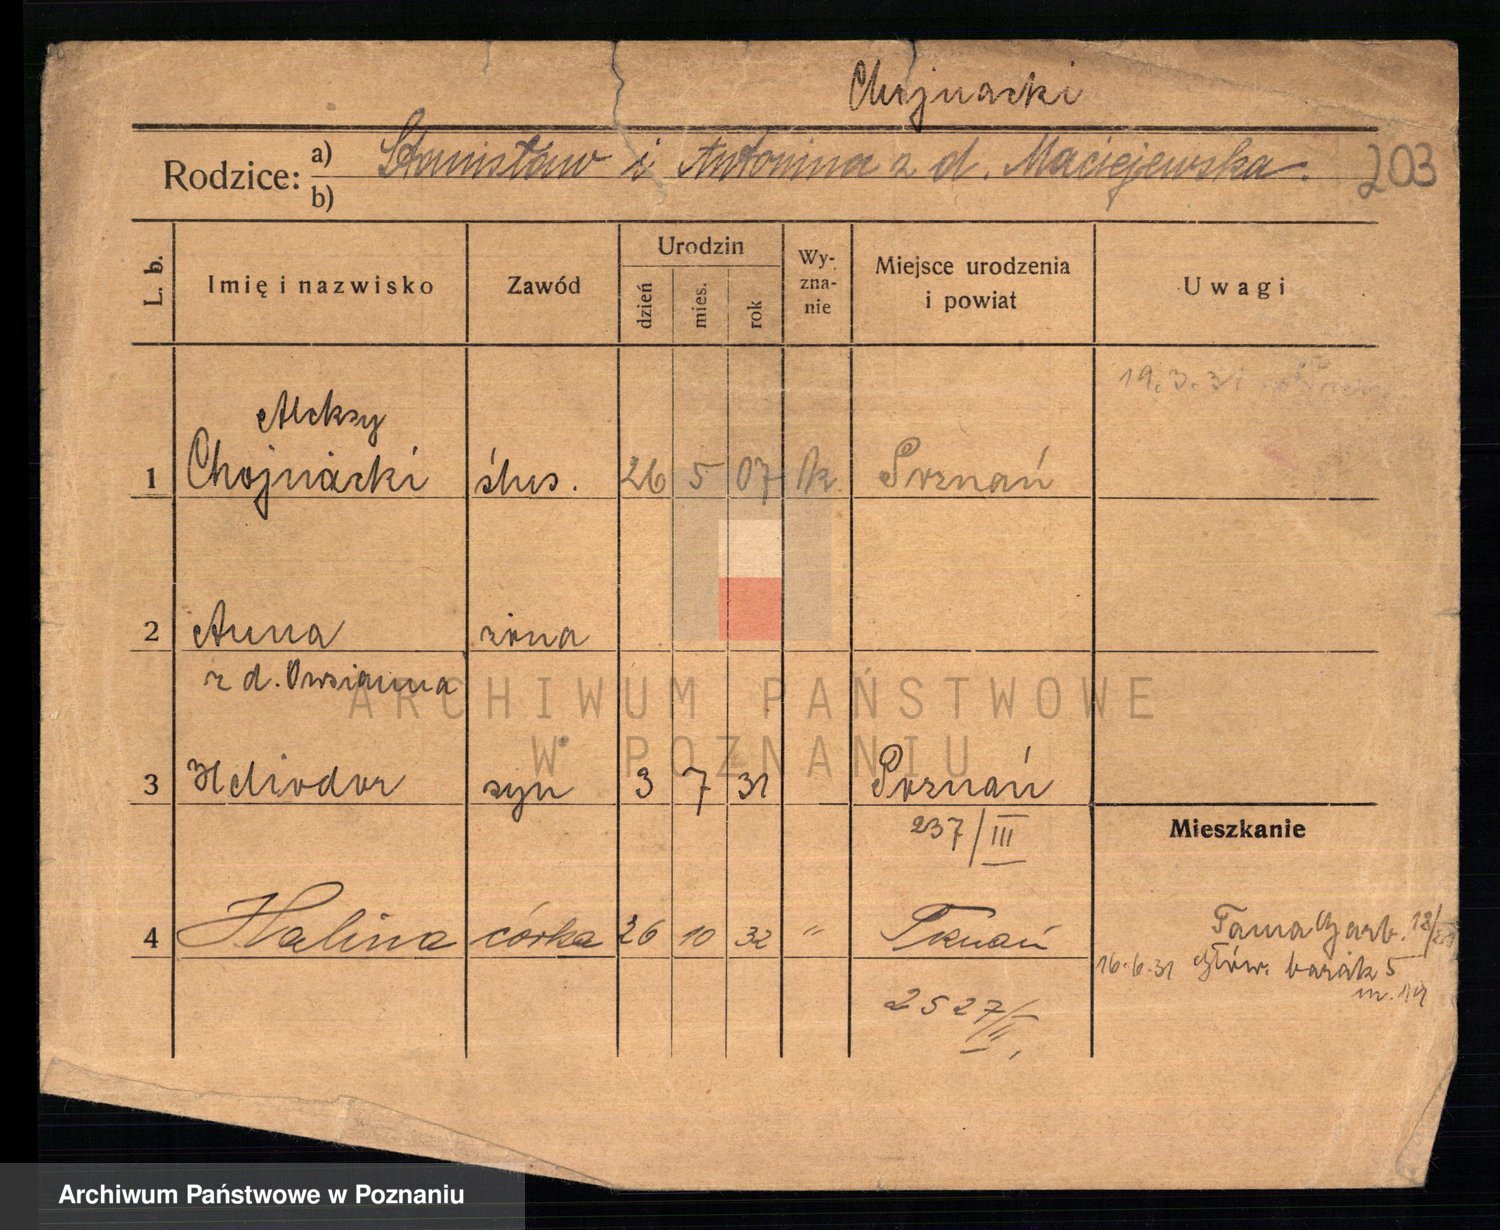 Chojnacki
Rodzice: a) Stanisław i Antonina z d. Maciejewska.
b)
203
L. b.
Imię i nazwisko
Zawód
Urodzin
dzień
mies.
rok
Wy-
zna-
nie
Miejsce urodzenia
i powiat
Uwagi
19.3.31
Aleksy
1 Chojnacki ślus. 26 5 07 Rk Poznań
2 Anna żona
z d. Owsianna
3 Heliodor syn 3 7 31 Poznań
237/III
Mieszkanie
4 Halina córka 26 10 32 " Poznań
Tama Garb.
16.6.31 Głów. barak 5
m. 14
2527/II
ARCHIWUM PAŃSTWOWE
W POZNANIU
Archiwum Państwowe w Poznaniu